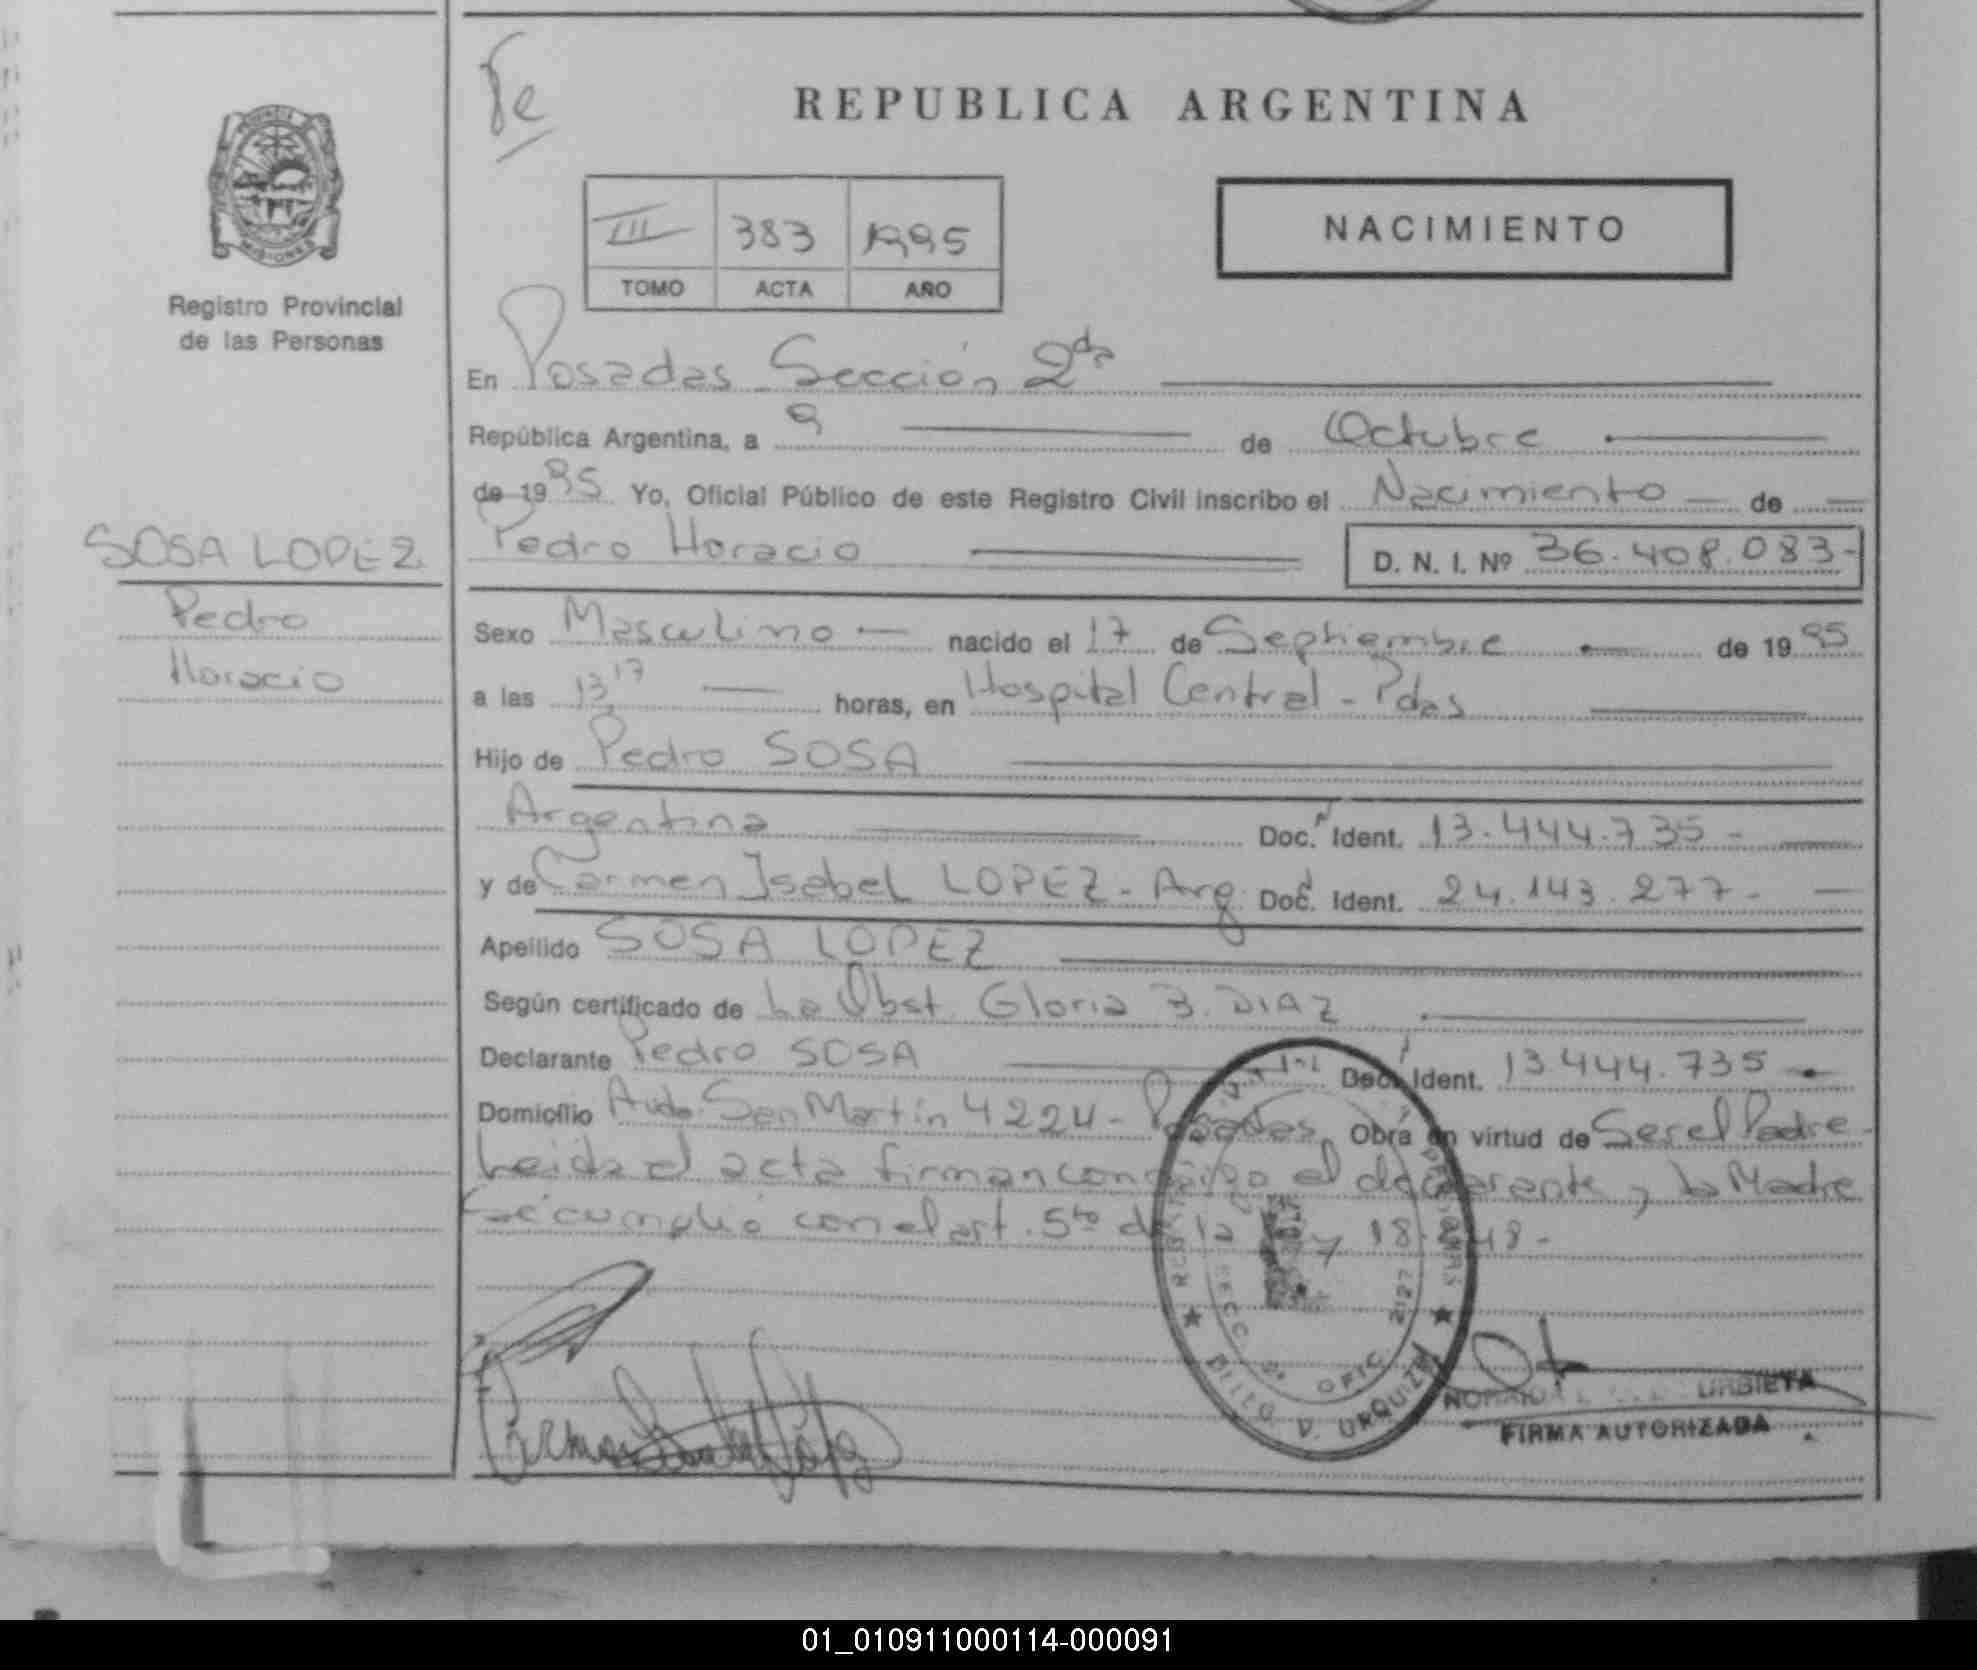 Te
REPUBLICA ARGENTINA
MISIONES
Registro Provincial
de las Personas
III 383 1995
TOMO ACTA AÑO
NACIMIENTO
En Posadas Sección 2da
República Argentina, a 9 de Octubre
de 1995 Yo, Oficial Público de este Registro Civil inscribo el Nacimiento de
SOSA LOPEZ
Pedro
Horacio
Pedro Horacio D. N. I. Nº 36.408.083-
Sexo Masculino nacido el 17 de Septiembre de 1995
a las 13,17 horas, en Hospital Central - Pdas
Hijo de Pedro SOSA
Argentina Doc. Ident. 13.444.735-
y de Carmen Isabel LOPEZ - Arg. Doc. Ident. 24.143.277-
Apellido SOSA LOPEZ
Según certificado de La Obst. Gloria B. DIAZ
Declarante Pedro SOSA Doc. Ident. 13.444.735
Domicilio Avda. San Martín 4224 - Posadas Obra en virtud de Ser el Padre-
Leida el acta firman conmigo el declarante y la Madre
Se cumplió con el art. 5to de la Ley 18.248-
SECC. 2ª OFIC. 2127
VILLA D. URQUIZA
URBIETA
FIRMA AUTORIZADA
01_010911000114-000091